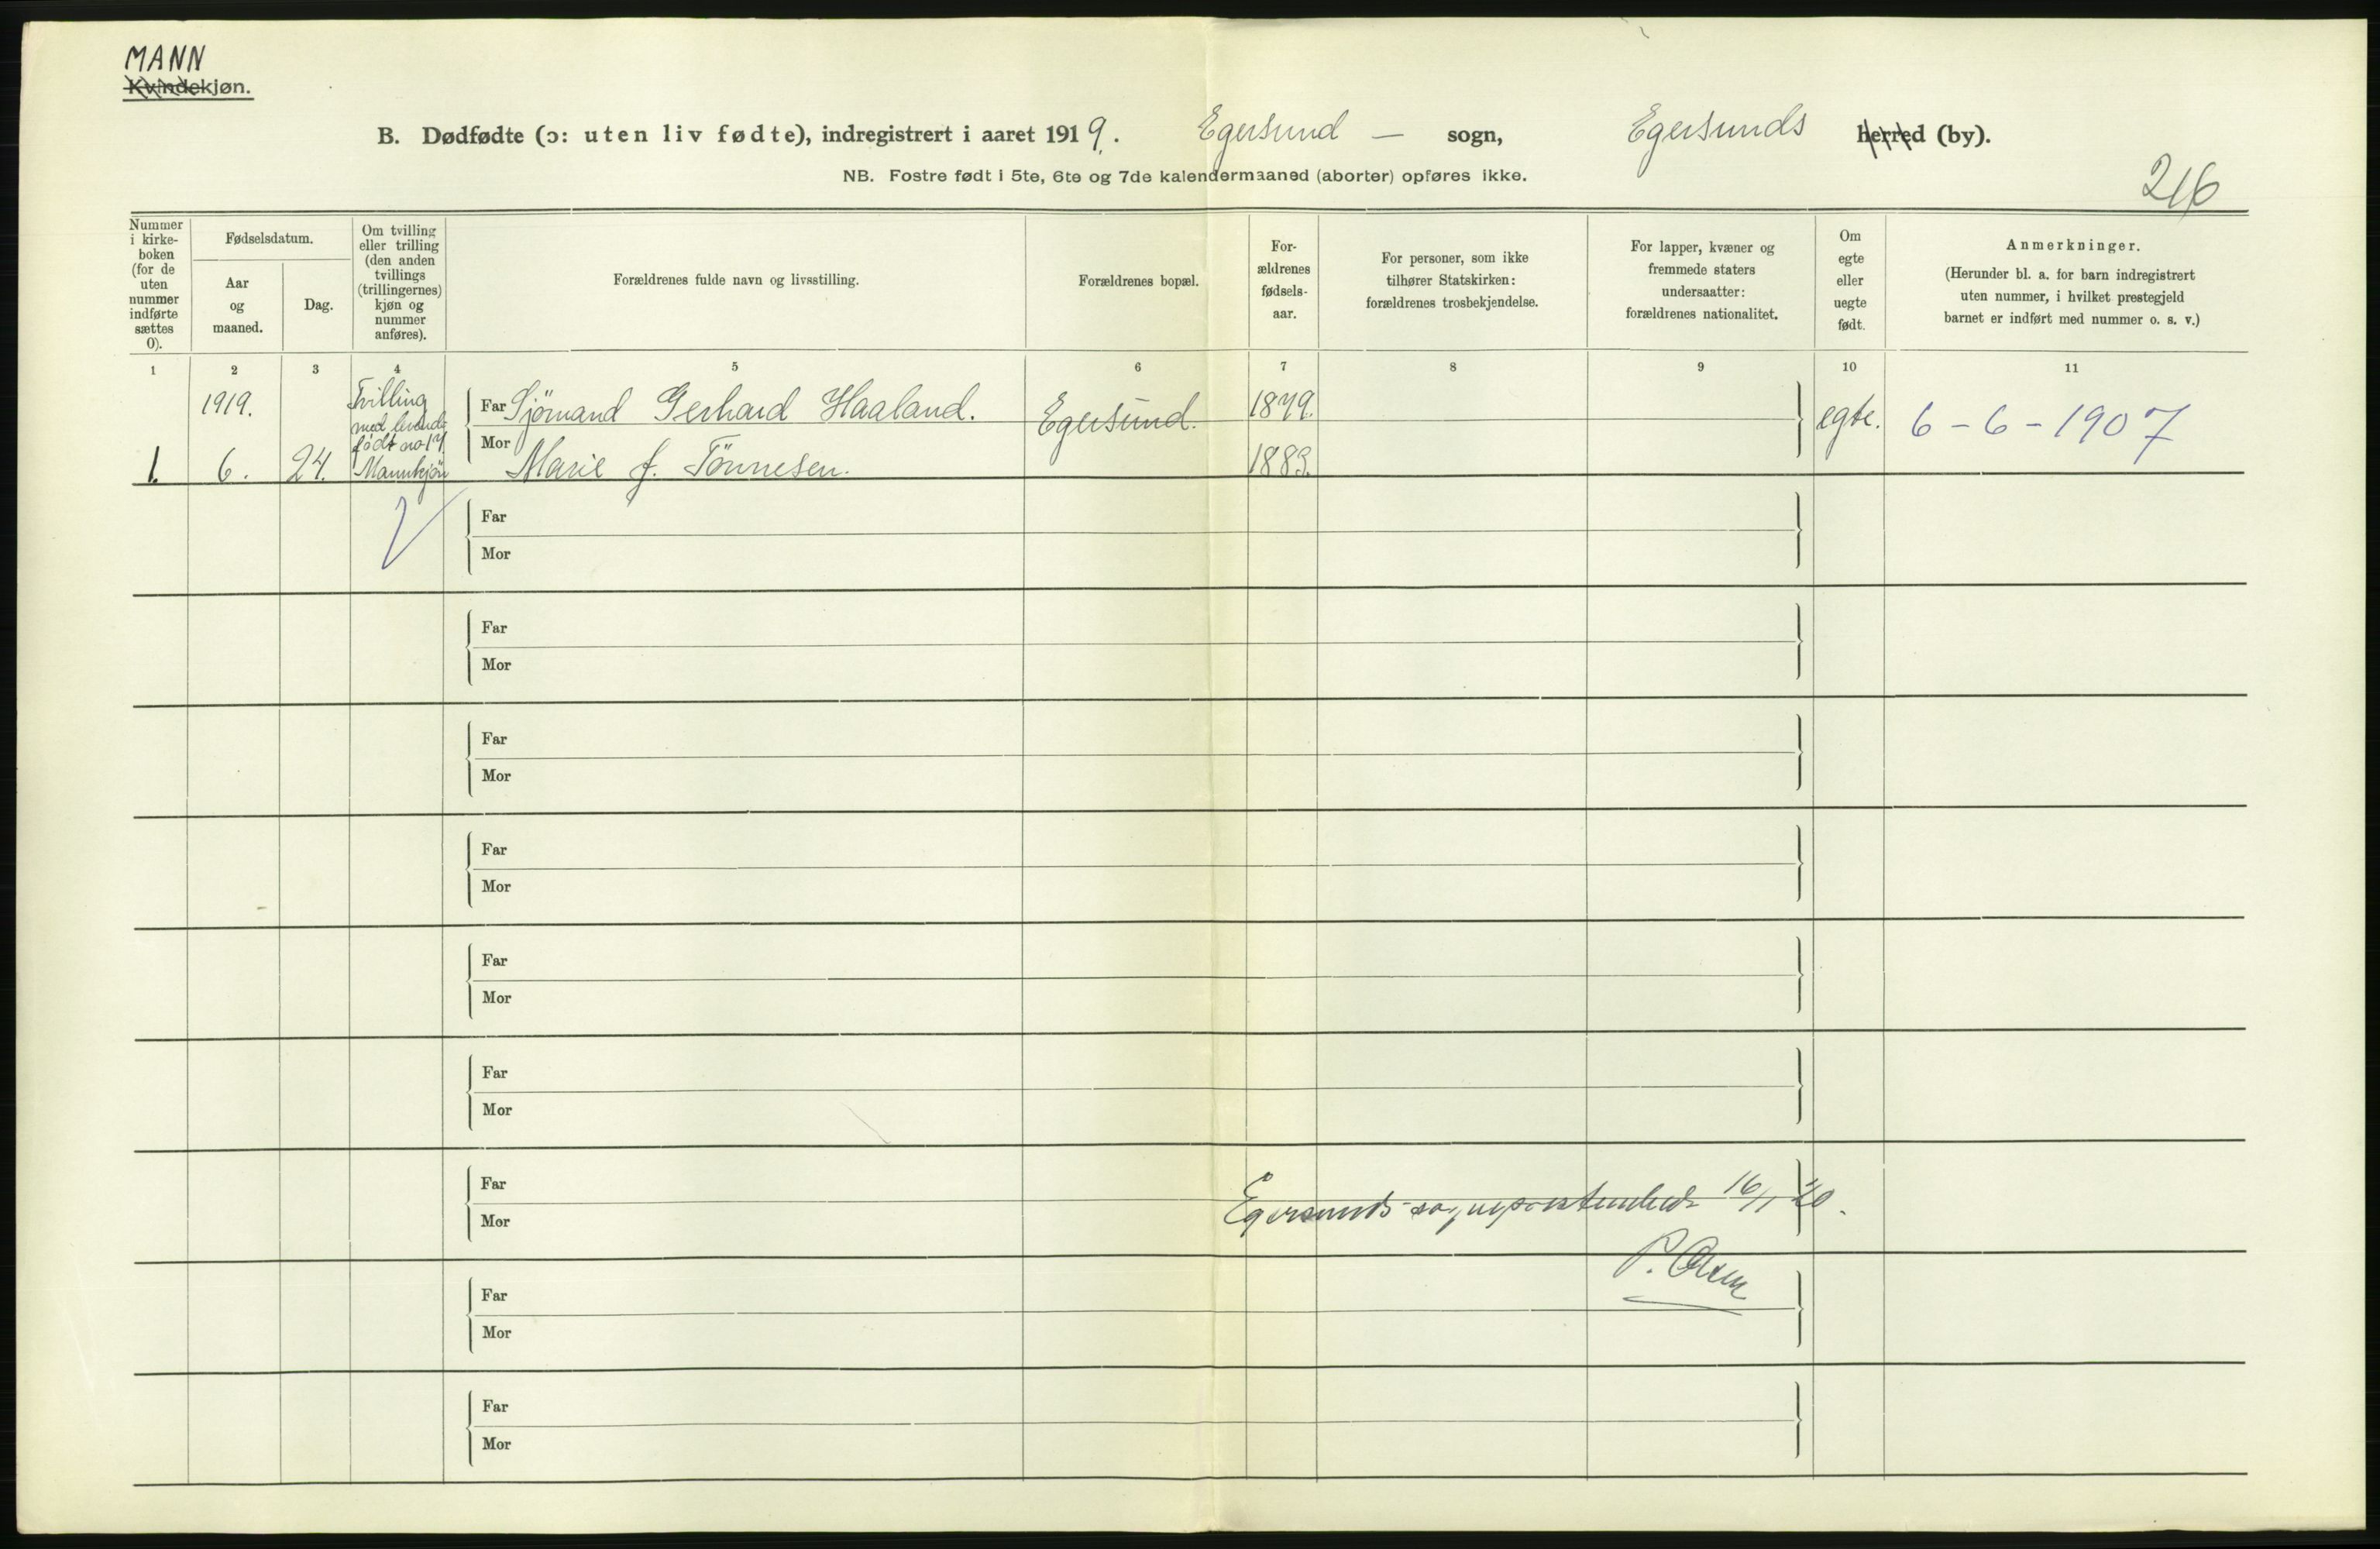 MANN
Kvindekjøn.
B. Dødfødte (ɔ: uten liv fødte), indregistrert i aaret 1919. Egersund — sogn, Egersunds herred (by).
NB. Fostre født i 5te, 6te og 7de kalendermaaned (aborter) opføres ikke.
216
Nummer
i kirke-
boken
(for de
uten
nummer
indførte
sættes
0).
Fødselsdatum.
Aar
og
maaned.
Dag.
Om tvilling
eller trilling
(den anden
tvillings
(trillingernes)
kjøn og
nummer
anføres).
Forældrenes fulde navn og livsstilling.
Forældrenes bopæl.
For-
ældrenes
fødsels-
aar.
For personer, som ikke
tilhører Statskirken:
forældrenes trosbekjendelse.
For lapper, kvæner og
fremmede staters
undersaatter:
forældrenes nationalitet.
Om
egte
eller
uegte
født.
Anmerkninger.
(Herunder bl. a. for barn indregistrert
uten nummer, i hvilket prestegjeld
barnet er indført med nummer o. s. v.)
1 2 3 4 5 6 7 8 9 10 11
1.
1919.
6.
24.
Tvilling
med levende
født no 17
Mannkjön
Far Sjömand Gerhard Haaland.
Mor Marie f. Tönnesen.
Egersund.
1879.
1883.
egte.
6-6-1907
Far
Mor
Far
Mor
Far
Mor
Far
Mor
Far
Mor
Far
Mor
Far
Mor
Egersunds 16/1 20.
P. Olsen
Far
Mor
Far
Mor